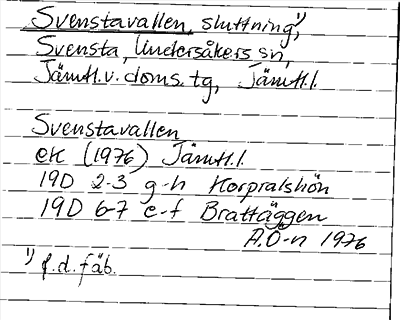 Svenstavallen, sluttning,¹)
Svensta, Undersåkers sn,
Jämtl.v. doms. tg, Jämtl.l.
Svenstavallen
ek (1976) Jämtl.l.
19D 2-3 g-h Korpralshön
19D 6-7 e-f Brattäggen
A.Ö-n 1976
¹) f.d. fäb.